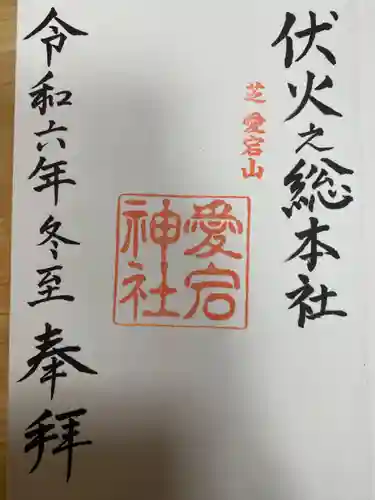 伏火之総本社
芝 愛宕山
愛宕
神社
令和六年 冬至 奉拝